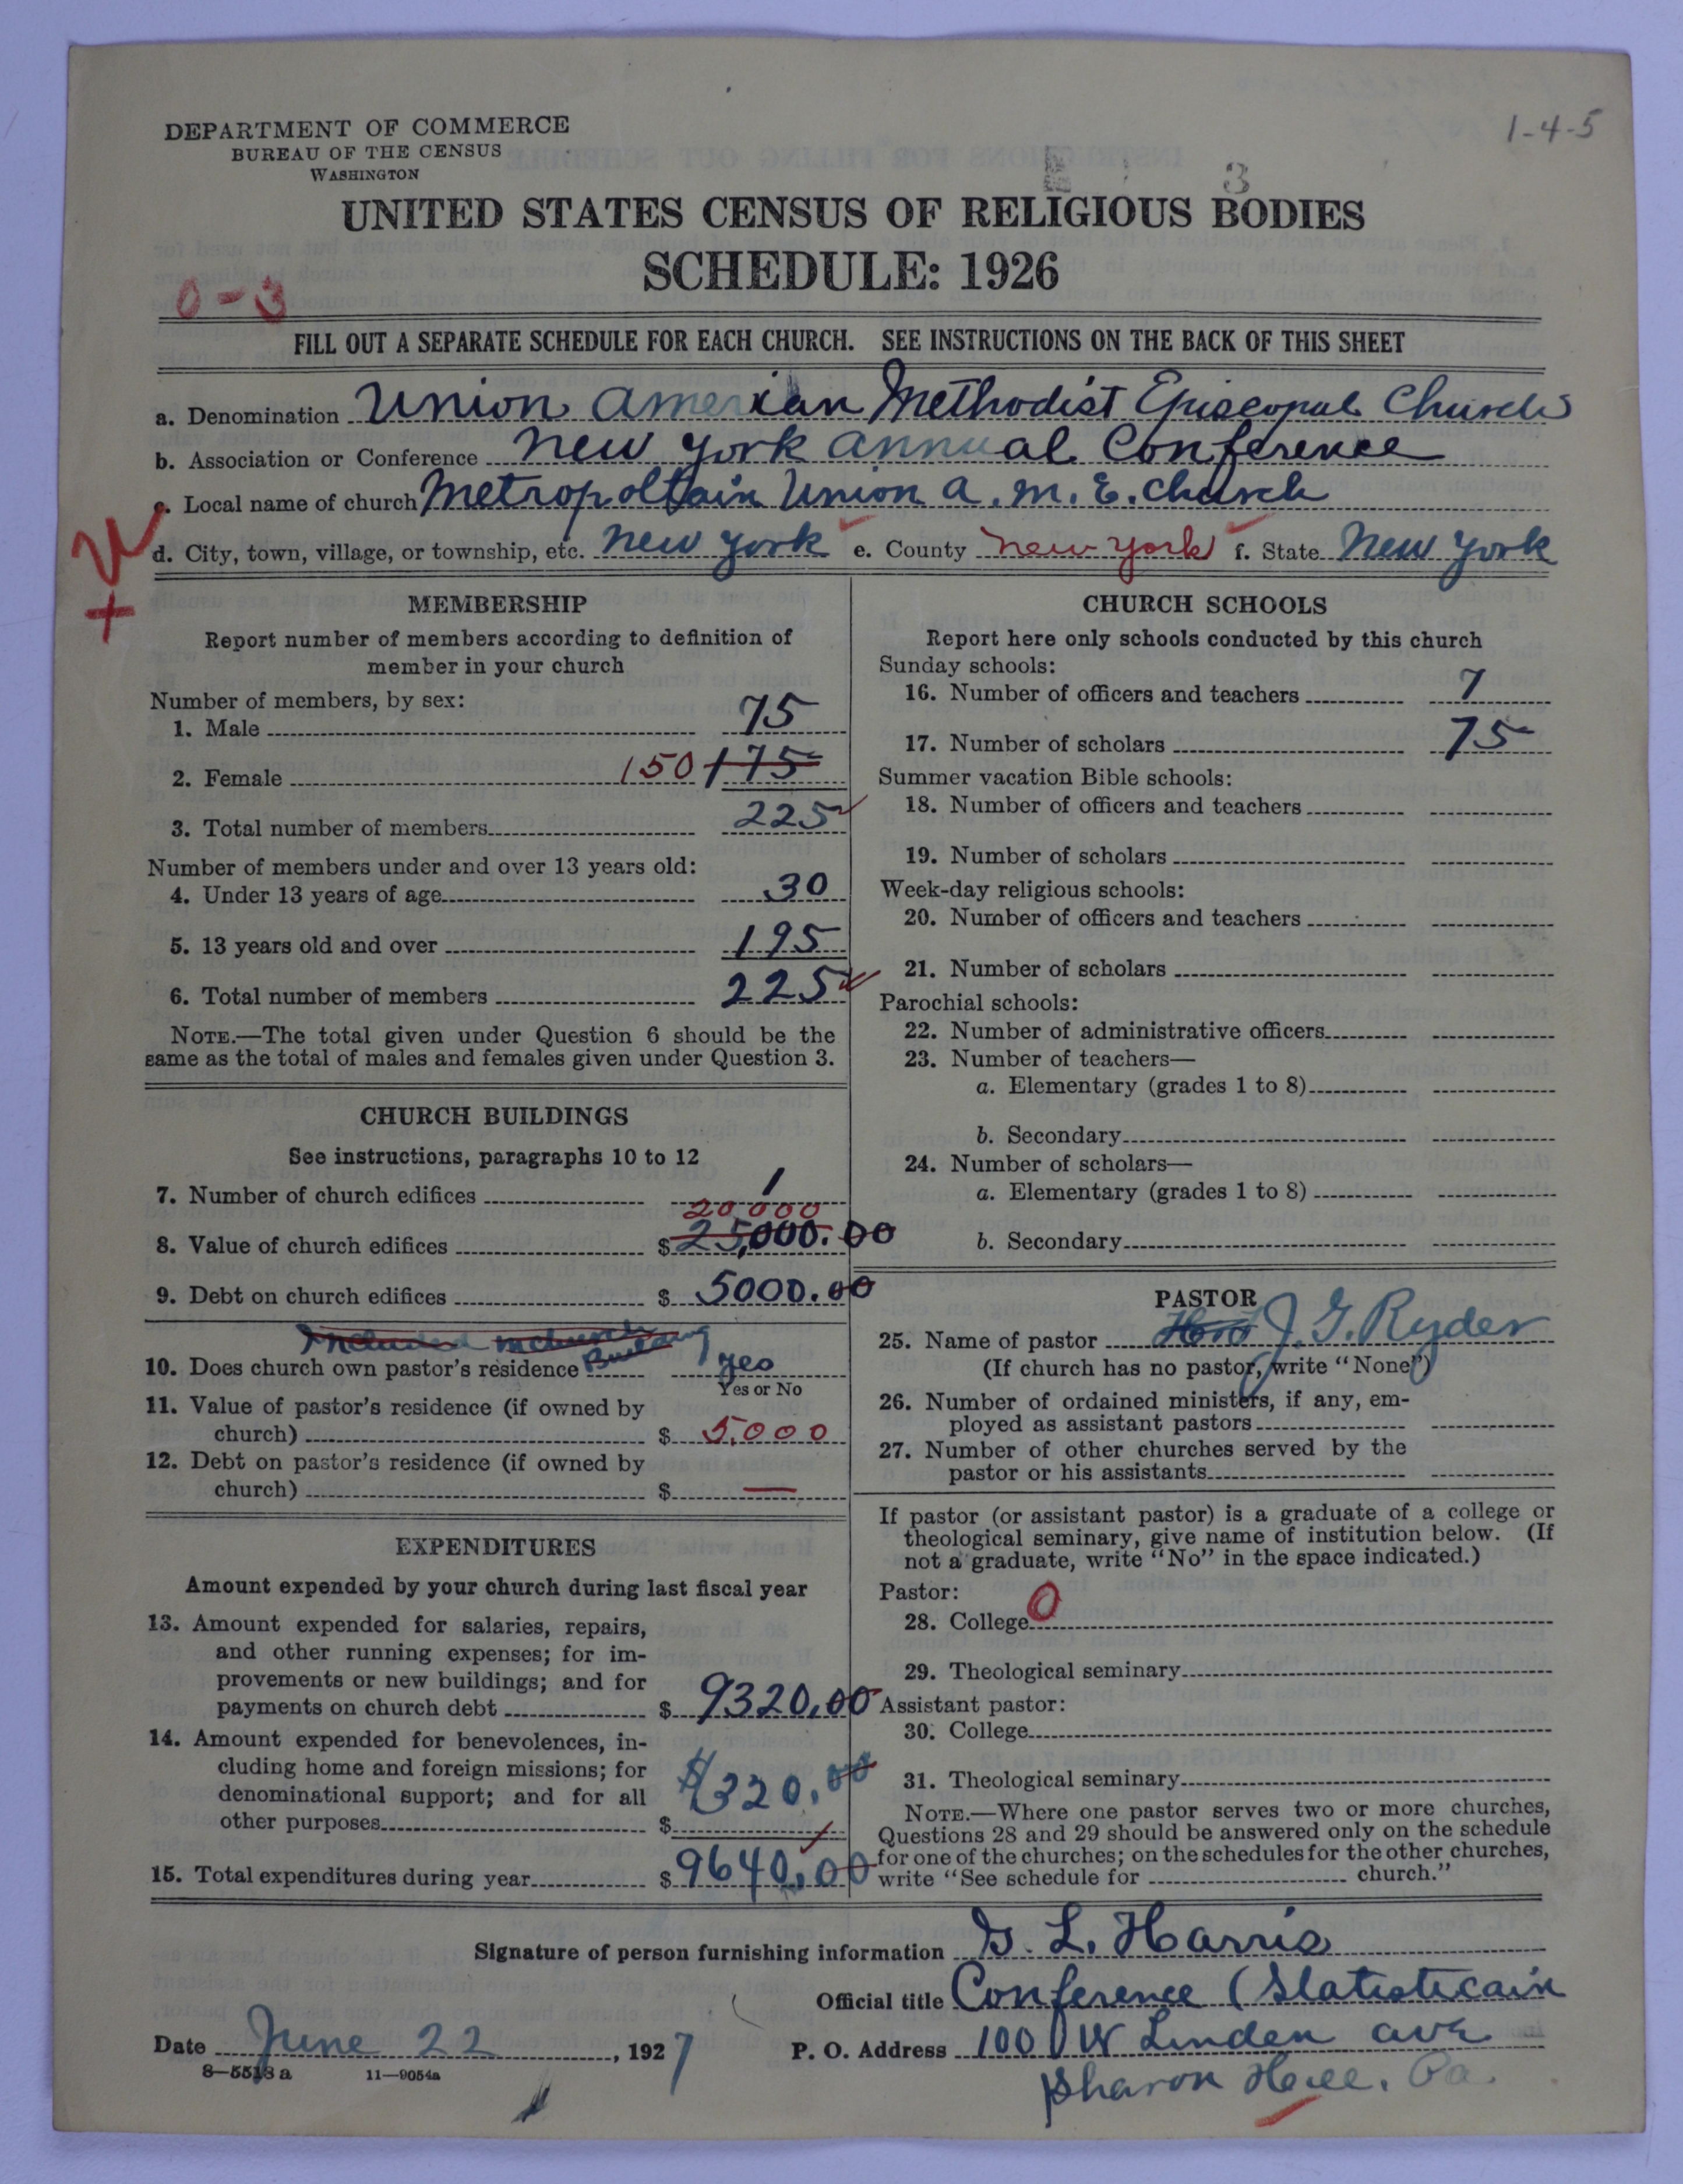 1-4-5
DEPARTMENT OF COMMERCE
BUREAU OF THE CENSUS
WASHINGTON
3
UNITED STATES CENSUS OF RELIGIOUS BODIES
SCHEDULE: 1926
0-3
FILL OUT A SEPARATE SCHEDULE FOR EACH CHURCH. SEE INSTRUCTIONS ON THE BACK OF THIS SHEET
a. Denomination Union American Methodist Episcopal Church
b. Association or Conference New York Annual Conference
c. Local name of church Metropoltain Union A. M. E. Church
d. City, town, village, or township, etc. New York e. County New York f. State New York
MEMBERSHIP
Report number of members according to definition of
member in your church
Number of members, by sex:
1. Male 75
2. Female 150 175
3. Total number of members 225
Number of members under and over 13 years old:
4. Under 13 years of age 30
5. 13 years old and over 195
6. Total number of members 225
NOTE.—The total given under Question 6 should be the
same as the total of males and females given under Question 3.
CHURCH BUILDINGS
See instructions, paragraphs 10 to 12
7. Number of church edifices 1
20000
8. Value of church edifices $ 25,000.00
9. Debt on church edifices $ 5000.00
Included in church
10. Does church own pastor's residence Building yes
Yes or No
11. Value of pastor's residence (if owned by
church) $ 5,000
12. Debt on pastor's residence (if owned by
church) $ —
EXPENDITURES
Amount expended by your church during last fiscal year
13. Amount expended for salaries, repairs,
and other running expenses; for im-
provements or new buildings; and for
payments on church debt $ 9320.00
14. Amount expended for benevolences, in-
cluding home and foreign missions; for
denominational support; and for all $320.00
other purposes $
15. Total expenditures during year $ 9640.00
CHURCH SCHOOLS
Report here only schools conducted by this church
Sunday schools:
16. Number of officers and teachers 7
17. Number of scholars 75
Summer vacation Bible schools:
18. Number of officers and teachers
19. Number of scholars
Week-day religious schools:
20. Number of officers and teachers
21. Number of scholars
Parochial schools:
22. Number of administrative officers
23. Number of teachers—
a. Elementary (grades 1 to 8)
b. Secondary
24. Number of scholars—
a. Elementary (grades 1 to 8)
b. Secondary
PASTOR
25. Name of pastor J. G. Ryder
(If church has no pastor, write "None")
26. Number of ordained ministers, if any, em-
ployed as assistant pastors
27. Number of other churches served by the
pastor or his assistants
If pastor (or assistant pastor) is a graduate of a college or
theological seminary, give name of institution below. (If
not a graduate, write "No" in the space indicated.)
Pastor:
28. College 0
29. Theological seminary
Assistant pastor:
30. College
31. Theological seminary
NOTE.—Where one pastor serves two or more churches,
Questions 28 and 29 should be answered only on the schedule
for one of the churches; on the schedules for the other churches,
write "See schedule for church."
Signature of person furnishing information G. L. Harris
Official title Conference (Statisticain
Date June 22, 1927 P. O. Address 100 W Linden ave
8—5518a 11—9054a
Sharon Hill. Pa.